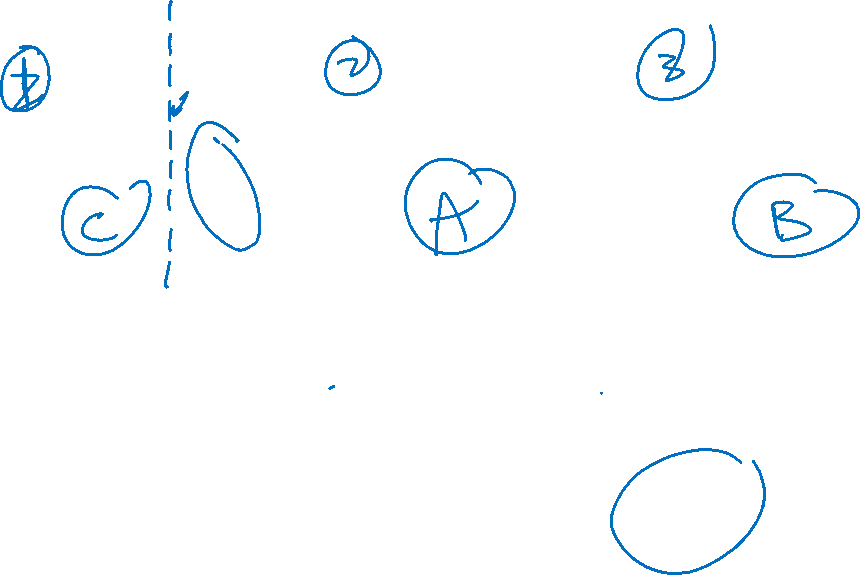 1 2 3
C A B